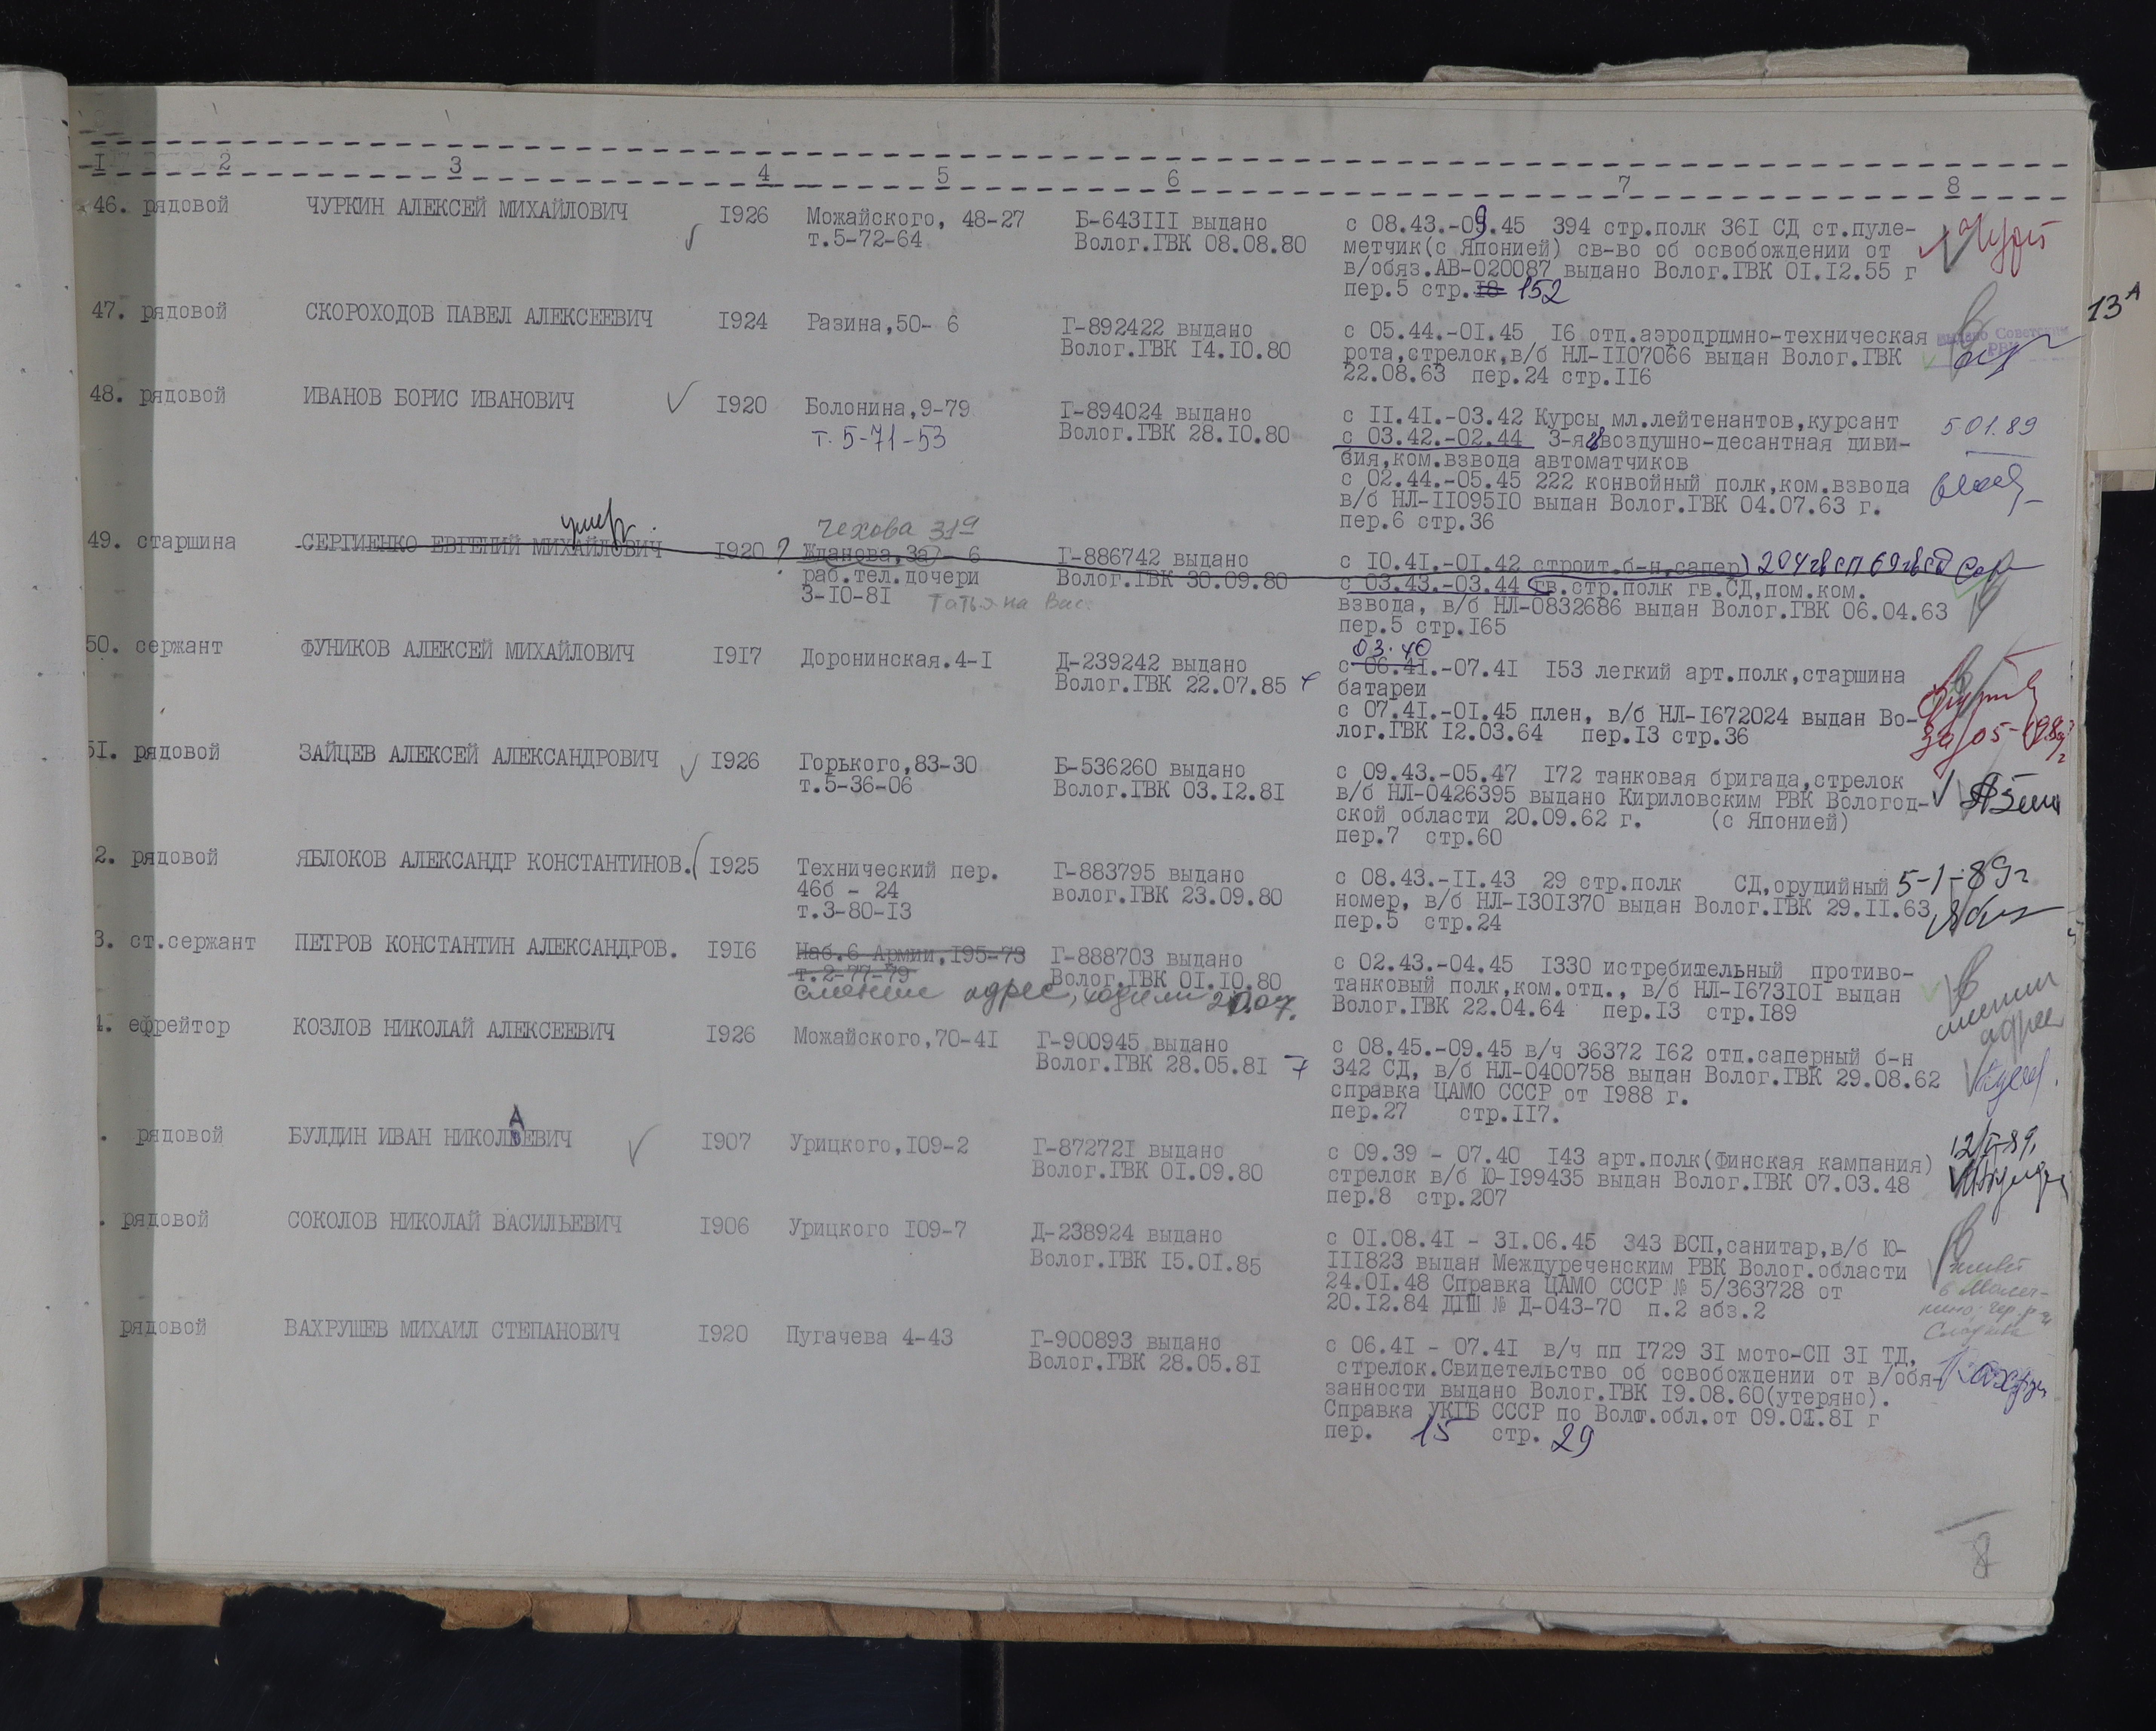 I 2 3 4 5 6 7 8
46. рядовой ЧУРКИН АЛЕКСЕЙ МИХАЙЛОВИЧ I926 Можайского, 48-27 Б-643III выдано с 08.43.-09.45 394 стр.полк 36I СД ст.пуле-
т.5-72-64 Волог.ГВК 08.08.80 метчик(с Японией) св-во об освобождении от
в/обяз.АВ-020087 выдано Волог.ГВК 0I.I2.55 г
пер.5 стр.I8 152
13А
47. рядовой СКОРОХОДОВ ПАВЕЛ АЛЕКСЕЕВИЧ I924 Разина,50- 6 Г-892422 выдано с 05.44.-0I.45 I6 отд.аэродрдмно-техническая
Волог.ГВК I4.I0.80 рота,стрелок,в/б НЛ-II07066 выдан Волог.ГВК
22.08.63 пер.24 стр.II6
выдано Советским
РВК
48. рядовой ИВАНОВ БОРИС ИВАНОВИЧ I920 Болонина,9-79 Г-894024 выдано с II.4I.-03.42 Курсы мл.лейтенантов,курсант 5 01.89
т. 5-71-53 Волог.ГВК 28.I0.80 с 03.42.-02.44 3-я воздушно-десантная диви-
зия,ком.взвода автоматчиков
с 02.44.-05.45 222 конвойный полк,ком.взвода
в/б НЛ-II095I0 выдан Волог.ГВК 04.07.63 г.
пер.6 стр.36
умер Чехова 31а
49. старшина СЕРГИЕНКО ЕВГЕНИЙ МИХАЙЛОВИЧ I920 ? Жданова,3а - 6 Г-886742 выдано с I0.4I.-0I.42 строит.б-н,сапер) 204гвсп 69гвсд
раб.тел.дочери Волог.ГВК 30.09.80 с 03.43.-03.44 гв.стр.полк гв.СД,пом.ком.
3-I0-8I Татьяна Вас. взвода, в/б НЛ-0832686 выдан Волог.ГВК 06.04.63
пер.5 стр.I65
03.40
50. сержант ФУНИКОВ АЛЕКСЕЙ МИХАЙЛОВИЧ I9I7 Доронинская.4-I Д-239242 выдано с 06.4I.-07.4I I53 легкий арт.полк,старшина
Волог.ГВК 22.07.85 батареи
с 07.4I.-0I.45 плен, в/б НЛ-I672024 выдан Во-
лог.ГВК I2.03.64 пер.I3 стр.36
5I. рядовой ЗАЙЦЕВ АЛЕКСЕЙ АЛЕКСАНДРОВИЧ I926 Горького,83-30 Б-536260 выдано с 09.43.-05.47 I72 танковая бригада,стрелок
т.5-36-06 Волог.ГВК 03.I2.8I в/б НЛ-0426395 выдано Кириловским РВК Вологод-
ской области 20.09.62 г. (с Японией)
пер.7 стр.60
2. рядовой ЯБЛОКОВ АЛЕКСАНДР КОНСТАНТИНОВ. I925 Технический пер. Г-883795 выдано с 08.43.-II.43 29 стр.полк СД,орудийный 5-1-89г
46б - 24 волог.ГВК 23.09.80 номер, в/б НЛ-I30I370 выдан Волог.ГВК 29.II.63
т.3-80-I3 пер.5 стр.24
3. ст.сержант ПЕТРОВ КОНСТАНТИН АЛЕКСАНДРОВ. I9I6 Наб.6 Армии,I95-73 Г-888703 выдано с 02.43.-04.45 I330 истребительный противо-
т.2-77-79 Волог.ГВК 0I.I0.80 танковый полк,ком.отд., в/б НЛ-I673I0I выдан
адрес, ходили Волог.ГВК 22.04.64 пер.I3 стр.I89
сменил
адрес
4. ефрейтор КОЗЛОВ НИКОЛАЙ АЛЕКСЕЕВИЧ I926 Можайского,70-4I Г-900945 выдано с 08.45.-09.45 в/ч 36372 I62 отд.саперный б-н
Волог.ГВК 28.05.8I 342 СД, в/б НЛ-0400758 выдан Волог.ГВК 29.08.62
справка ЦАМО СССР от I988 г.
пер.27 стр.II7.
. рядовой БУЛДИН ИВАН НИКОЛАЕВИЧ I907 Урицкого,I09-2 Г-87272I выдано с 09.39 - 07.40 I43 арт.полк(Финская кампания)
Волог.ГВК 0I.09.80 стрелок в/б Ю-I99435 выдан Волог.ГВК 07.03.48
пер.8 стр.207
. рядовой СОКОЛОВ НИКОЛАЙ ВАСИЛЬЕВИЧ I906 Урицкого I09-7 Д-238924 выдано с 0I.08.4I - 3I.06.45 343 ВСП,санитар,в/б Ю-
Волог.ГВК I5.0I.85 III823 выдан Междуреченским РВК Волог.области
24.0I.48 Справка ЦАМО СССР № 5/363728 от
20.I2.84 ДПШ № Д-043-70 п.2 абз.2
рядовой ВАХРУШЕВ МИХАИЛ СТЕПАНОВИЧ I920 Пугачева 4-43 Г-900893 выдано с 06.4I - 07.4I в/ч пп I729 3I мото-СП 3I ТД,
Волог.ГВК 28.05.8I стрелок.Свидетельство об освобождении от в/обя-
занности выдано Волог.ГВК I9.08.60(утеряно).
Справка УКГБ СССР по Волог.обл.от 09.0I.8I г
пер. 15 стр. 29
8